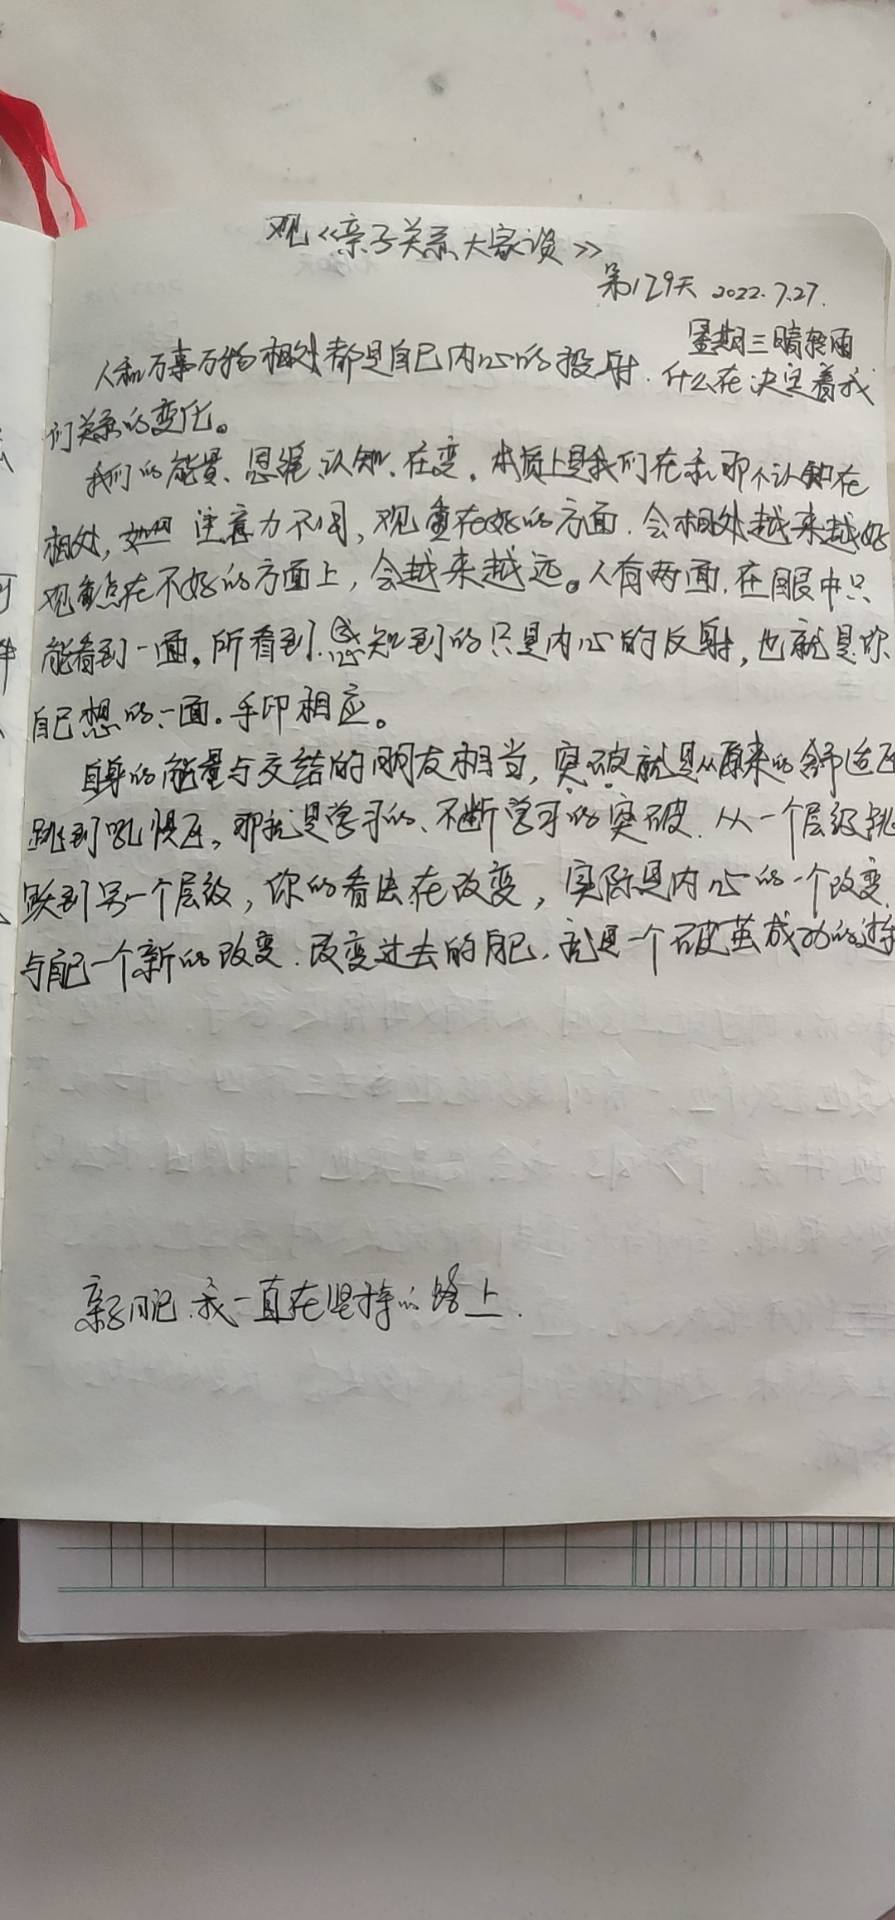 观《亲子关系大家谈》
第129天 2022.7.27.
星期三晴转雨
人和万事万物相处都是自己内心的投射.什么在决定着我
们关系的变化。
我们的能量、思维、认知.在变。本质上是我们在和那个认知在
相处, 注意力不同,观重在好的方面.会相处越来越好
观重点在不好的方面上,会越来越远。人有两面.在眼中只
能看到一面。所看到.感知到的只是内心的反射,也就是你
自己想的一面。手印相应。
自身的能量与交结的朋友相当,突破就是从原来的舒适区
跳到恐惧区。那就是学习的、不断学习的突破.从一个层级跳
跃到另一个层级,你的看法在改变,实际是内心的一个改变.
与自己一个新的改变.改变过去的自己.就是一个破茧成功的过程
亲子日记.我一直在坚持的路上.